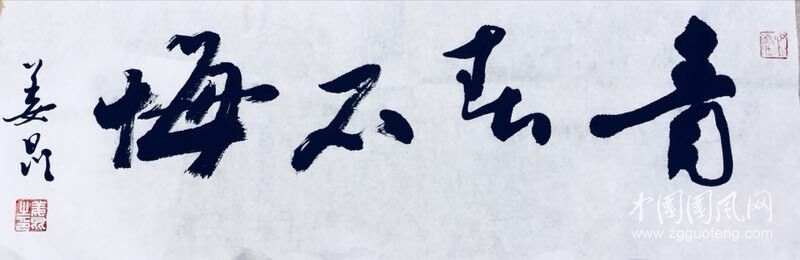 青春不悔
姜昆
中國國风网
www.zgguofeng.com